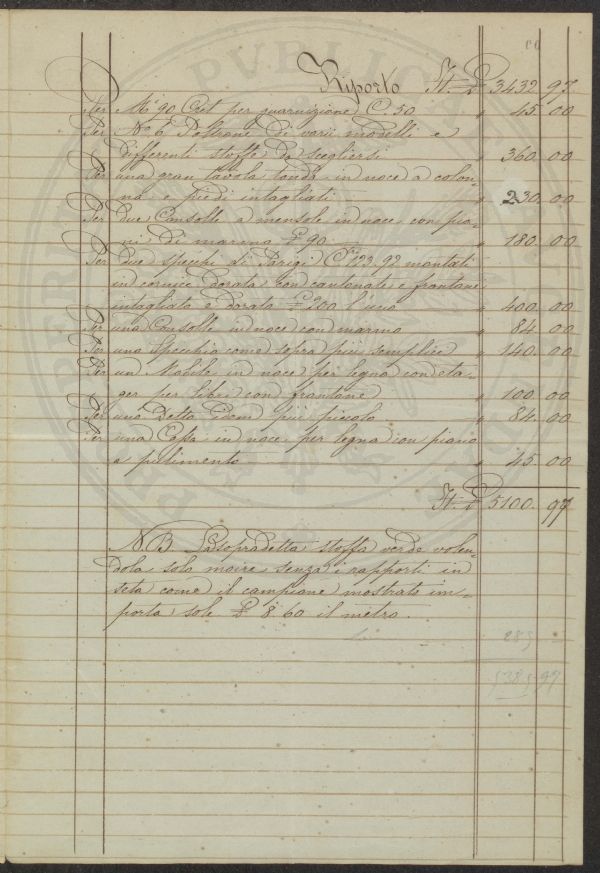 Riporto It. £ 3432. 97
Per M. 90 Crêt per guarnizione C. 50 " 45. 00
Per No. 6 Poltrone di varii modelli e
differenti stoffe da scegliersi " 360. 00
Per una gran tavola tonda in noce a colon-
na e piedi intagliati " 230. 00
Per due Consolle a mensole in noce con pia-
ni di marmo £ 90 " 180. 00
Per due specchi di Parigi C. 123. 92 montati
in cornice dorata con cantonate e frontone
intagliato e dorato £ 200 l'uno " 400. 00
Per una Consolle in noce con marmo " 84. 00
Per uno Specchio come sopra più semplice " 140. 00
Per un Mobile in noce per legna con eta-
ger per libri con frontone " 100. 00
Per uno Detto Idem più piccolo " 84. 00
Per una Cassa in noce per legna con piano
a pulimento " 45. 00
It. £ 5100. 97
N.B. La sopradetta stoffa verde volen-
dola solo moire senza i rapporti in
seta come il campione mostrato im-
porta sole £ 8. 60 il metro.
285 —
5385 97
PVBLICAE